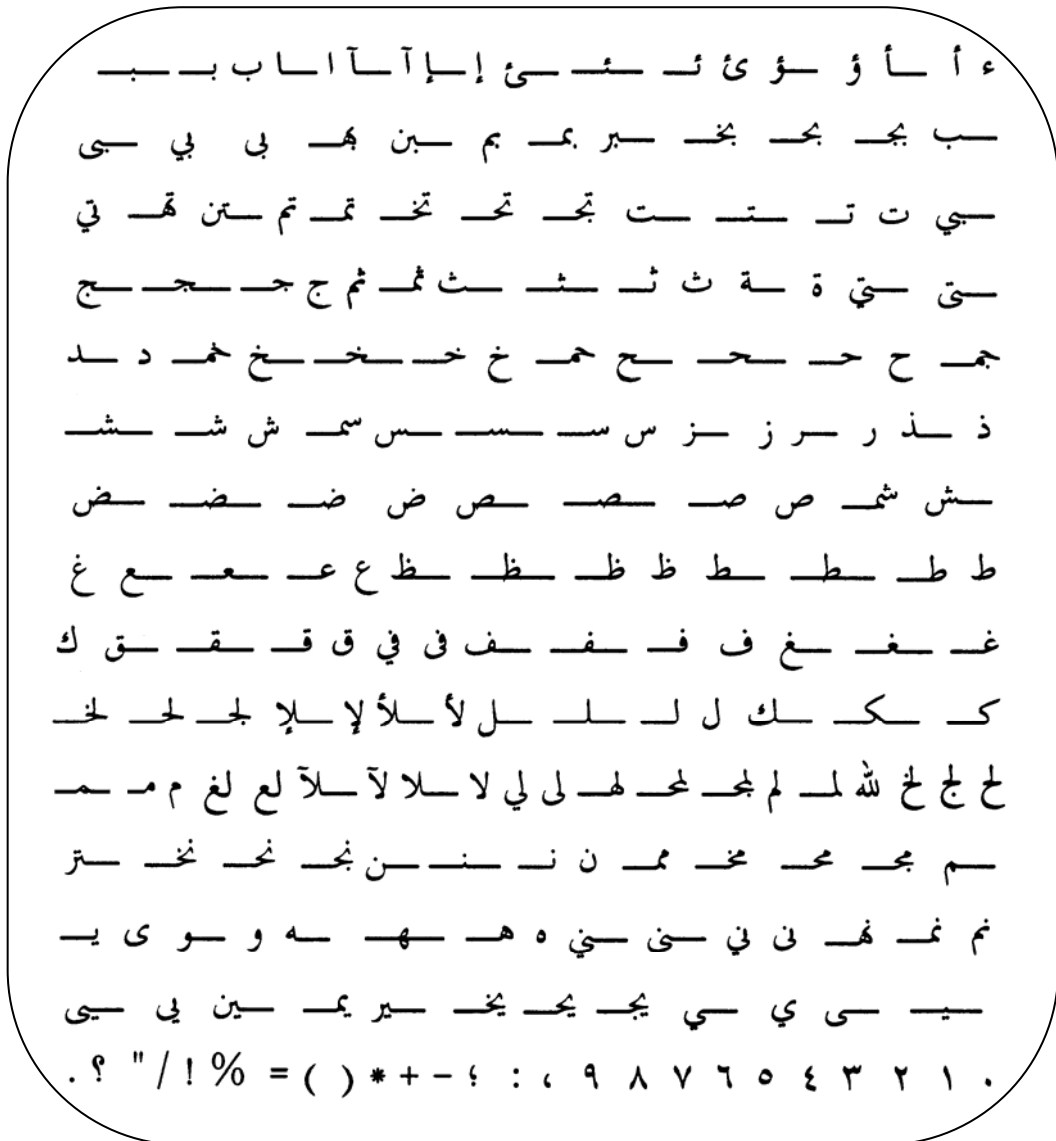 ء أ ـأ ؤ ـؤ ئ ئـ ـئـ ـئ إ ـإ آ ـآ ا ـا ب بـ ـبـ
ـب بجـ بحـ بخـ ـبر بمـ بم ـبن بهـ بى بي ـبى
ـبي ت تـ ـتـ ـت تجـ تحـ تخـ تمـ تم ـتن تهـ تي
ـتى ـتي ة ـة ث ثـ ـثـ ـث ثمـ ثم ج جـ ـجـ ـج
جمـ ح حـ ـحـ ـح حمـ خ خـ ـخـ ـخ خمـ د ـد
ذ ـذ ر ـر ز ـز س سـ ـسـ ـس سمـ ش شـ ـشـ
ـش شمـ ص صـ ـصـ ـص ض ضـ ـضـ ـض
ط طـ ـطـ ـط ظ ظـ ـظـ ـظ ع عـ ـعـ ـع غ
غـ ـغـ ـغ ف فـ ـفـ ـف فى في ق قـ ـقـ ـق ك
كـ ـكـ ـك ل لـ ـلـ ـل لأ ـلأ لإ ـلإ لجـ لحـ لخـ
لح لج لخ لله لمـ لم لمجـ لمحـ لهـ لى لي لا ـلا لآ ـلآ لع لغ م مـ ـمـ
ـم مجـ محـ مخـ ممـ ن نـ ـنـ ـن نجـ نحـ نخـ ـتز
نم نمـ نهـ نى ني ـنى ـني ه هـ ـهـ ـه و ـو ى يـ
ـيـ ـى ي ـي يجـ يحـ يخـ ـير يمـ ـين يى ـيى
٠ ١ ٢ ٣ ٤ ٥ ٦ ٧ ٨ ٩ ، : ؛ - + * ( ) = % ! / " ؟ .